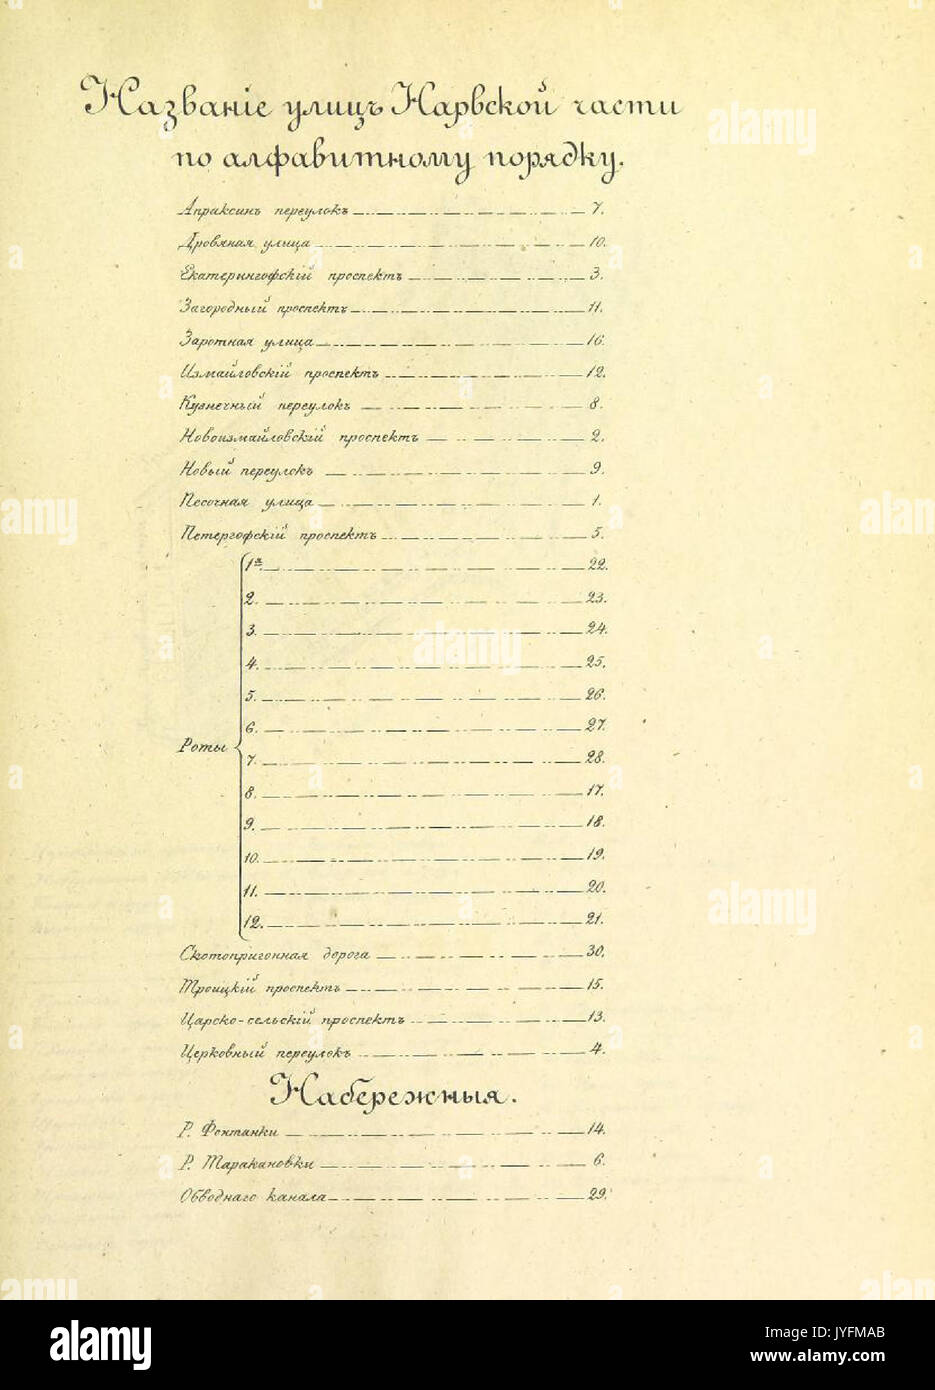 Названіе улицъ Нарвской части
по алфавитному порядку.
Апраксинъ переулокъ 7.
Дровяная улица 10.
Екатерингофскій проспектъ 3.
Загородный проспектъ 11.
Заротная улица 16.
Измайловскій проспектъ 12.
Кузнечный переулокъ 8.
Новоизмайловскій проспектъ 2.
Новый переулокъ 9.
Песочная улица 1.
Петергофскій проспектъ 5.
1я. 22.
2. 23.
3. 24.
4. 25.
5. 26.
6. 27.
Роты
7. 28.
8. 17.
9. 18.
10. 19.
11. 20.
12. 21.
Скотопригонная дорога 30.
Троицкій проспектъ 15.
Царско-сельскій проспектъ 13.
Церковный переулокъ 4.
Набережныя.
Р. Фонтанки 14.
Р. Таракановки 6.
Обводнаго канала 29.
alamy
Image ID: JYFMAB
www.alamy.com